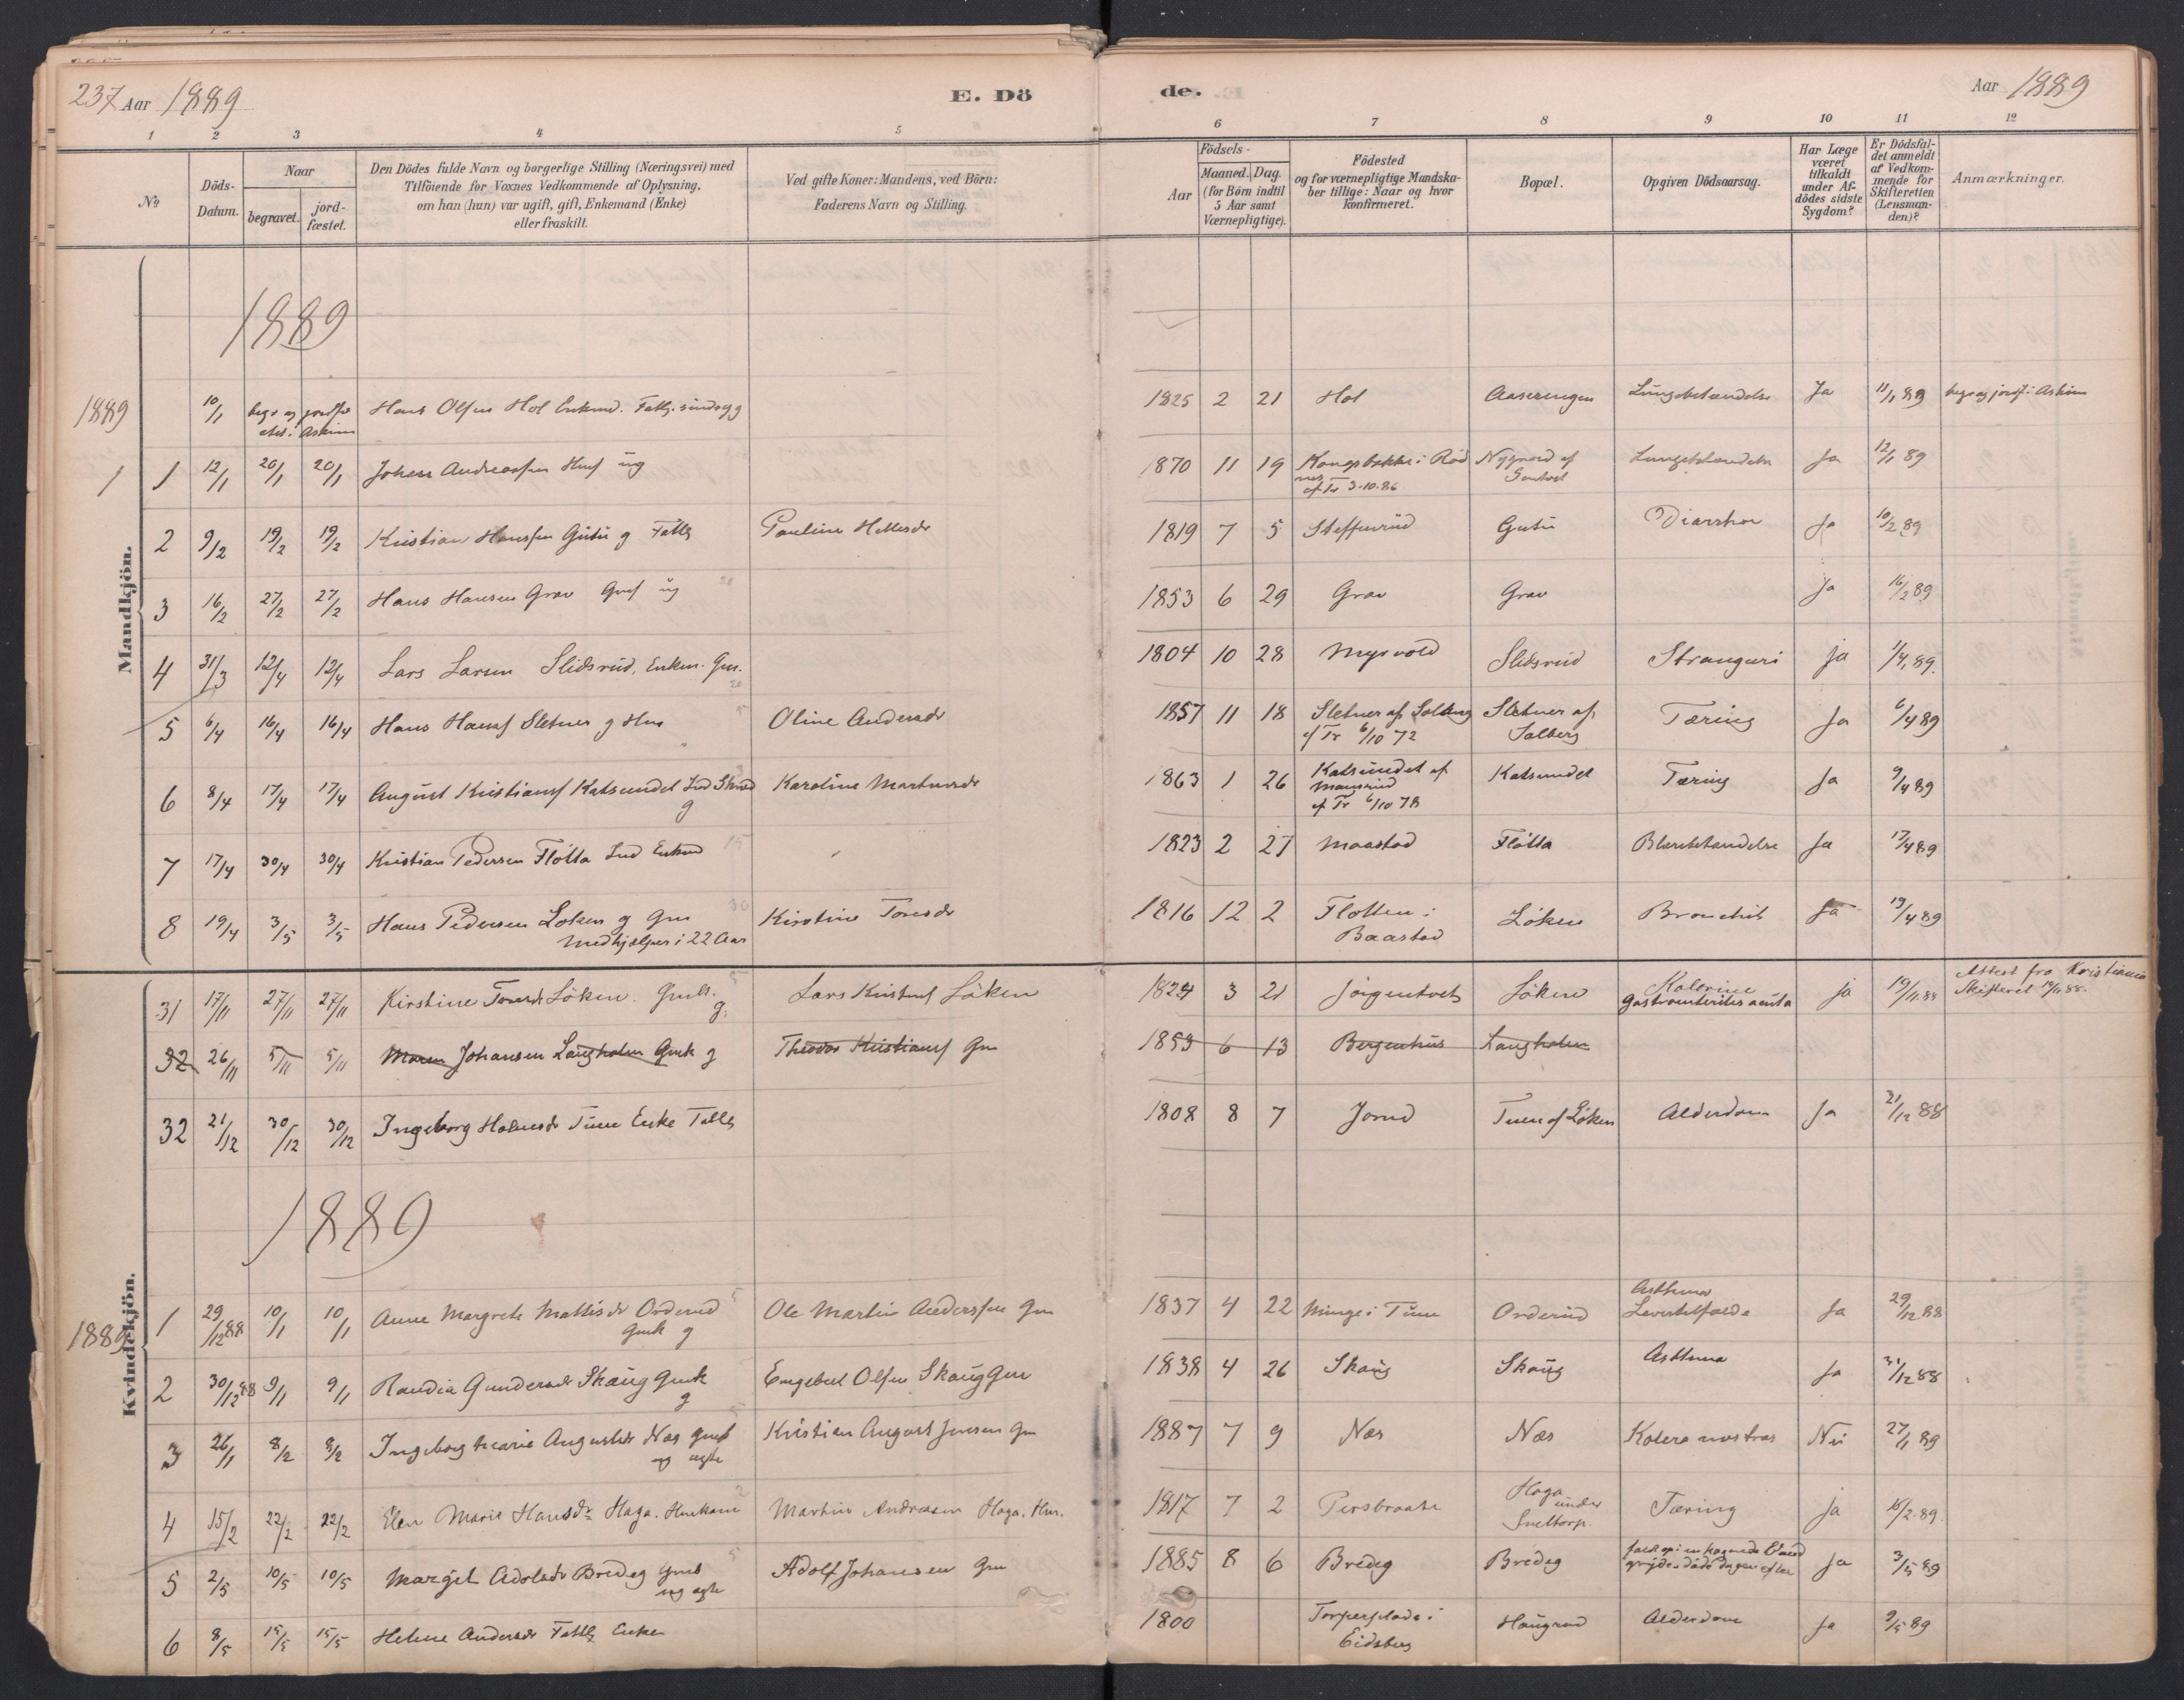 237 Aar 1889
E. Dö
de.
Aar 1889
1 2 3 4 5 6 7 8 9 10 11 12
No
Döds-Datum.
Naar
begravet.
jord-fæstet.
Den Dödes fulde Navn og borgerlige Stilling (Næringsvei) med
Tilföiende for Voxnes Vedkommende af Oplysning,
om han (hun) var ugift, gift, Enkemand (Enke)
eller fraskilt.
Ved gifte Koner: Mandens, ved Börn:
Faderens Navn og Stilling.
Födsels-
Aar
Maaned. Dag.
(for Börn indtil
5 Aar samt
Værnepligtige).
Födested
og for værnepligtige Mandska-
ber tillige: Naar og hvor
konfirmeret.
Bopæl.
Opgiven Dödsaarsag.
Har Læge
været
tilkaldt
under Af-
dödes sidste
Sygdom?
Er Dödsfal-
det anmeldt
af Vedkom-
mende for
Skifteretten
(Lensman-
den)?
Anmærkninger.
Mandkjön.
1889
1889 10/1 Hans Olsen Hol Enkmd. Fattg. sindssyg 1825 2 21 Hol Aaserengen Lungebetændelse Ja 11/1 89 begr og jordf i Askim
1 1 12/1 20/1 20/1 Johan Andreassen ug 1870 11 19 Kongsbakke i Röd 12/1 89 Ja
3-10-86
2 9/2 19/2 19/2 Kristian Hanssen Gutu g Fattg Pauline 1819 7 5 Steffenrud Gutu Diarrhoe Ja 10/2 89
3 16/2 27/2 27/2 Hans Hansen Grav ug 1853 6 29 Grav Grav Ja 16/2 89
4 31/3 12/4 12/4 Lars Larsen Slidsrud, Enkem. Gm. 1804 10 28 Myrvold Slidsrud Stranguri ja 1/4, 89.
5 6/4 16/4 16/4 Hans Hansf Sletner g Hm Oline Andersdr 1857 11 18 Sletner af Solberg Sletner af Solberg Tæring Ja 6/4 89
af Tr 6/10 72
6 8/4 17/4 17/4 August Kristiansf Katsundet Karoline Martinsdr 1863 1 26 Katsundet af Katsundet Tæring Ja 9/4 89
g
af Tr 6/10 78
7 17/4 30/4 30/4 Kristian Pedersen Flötta Ind Enkmd 1823 2 27 Maastad Flötta Blærebetændelse Ja 17/4 89
8 19/4 3/5 3/5 Hans Pedersen Löken g Gm Kirstine Toresdr 1816 12 2 Flotten i Baastad Löken Bronchit Ja 19/4 89
Medhjælper i 22 Aar
Kvindekjön.
31 17/11 27/11 27/11 Kirstine Toresdr Löken. Gmk. g. Lars Kristensf Löken 1824 3 21 Jörgentvet Löken Kolerine Gastroenterites acuta ja 19/11 88 Attest fra Kristiania Skifteret 19/11 88.
32 26/11 5/11 5/11 Maren Johansen Langholm Gmk g Theodor Kristiansf Gm 1853 6 13 Bergenhus Langholm
32 21/12 30/12 30/12 Ingeborg Tuen Enke Fattg 1808 8 7 Jorud Tuen af Löken Alderdom Ja 21/12 88
1889
1889 1 29/12 88 10/1 10/1 Anne Margrete Mattisdr Orderud Gmk g Ole Martin Anderssen Gm 1837 4 22 Minge i Tune Orderud Asthma Ja 29/12 88
2 30/12 88 9/1 9/1 Randia Gundersdr Skaug Gmk g Engebret Olsen Skaug Gm 1838 4 26 Skaug Skaug Asthma Ja 31/12 88
3 26/1 8/2 8/2 Ingeborg Marie Augustsdr Næs Gmb ug ægte Kristian August Jensen Gm 1887 7 9 Næs Næs Kolera nostras Nei 27/1 89
4 15/2 22/2 22/2 Elen Marie Hansdr Haga. Hmkone Martin Andreasen Haga. Hm. 1817 7 2 Persbraate Haga under Sneltorp. Tæring ja 15/2 89.
5 2/5 10/5 10/5 Margit Adolsdr Bredeg Gmb ug ægte Adolf Johansen Gm 1885 8 6 Bredeg Bredeg gryde döde dagen efter Ja 3/5 89
6 8/5 15/5 15/5 Helene Andersdr Fattg Enke 1800 i Eidsberg Haugrud Alderdom Ja 9/5 89